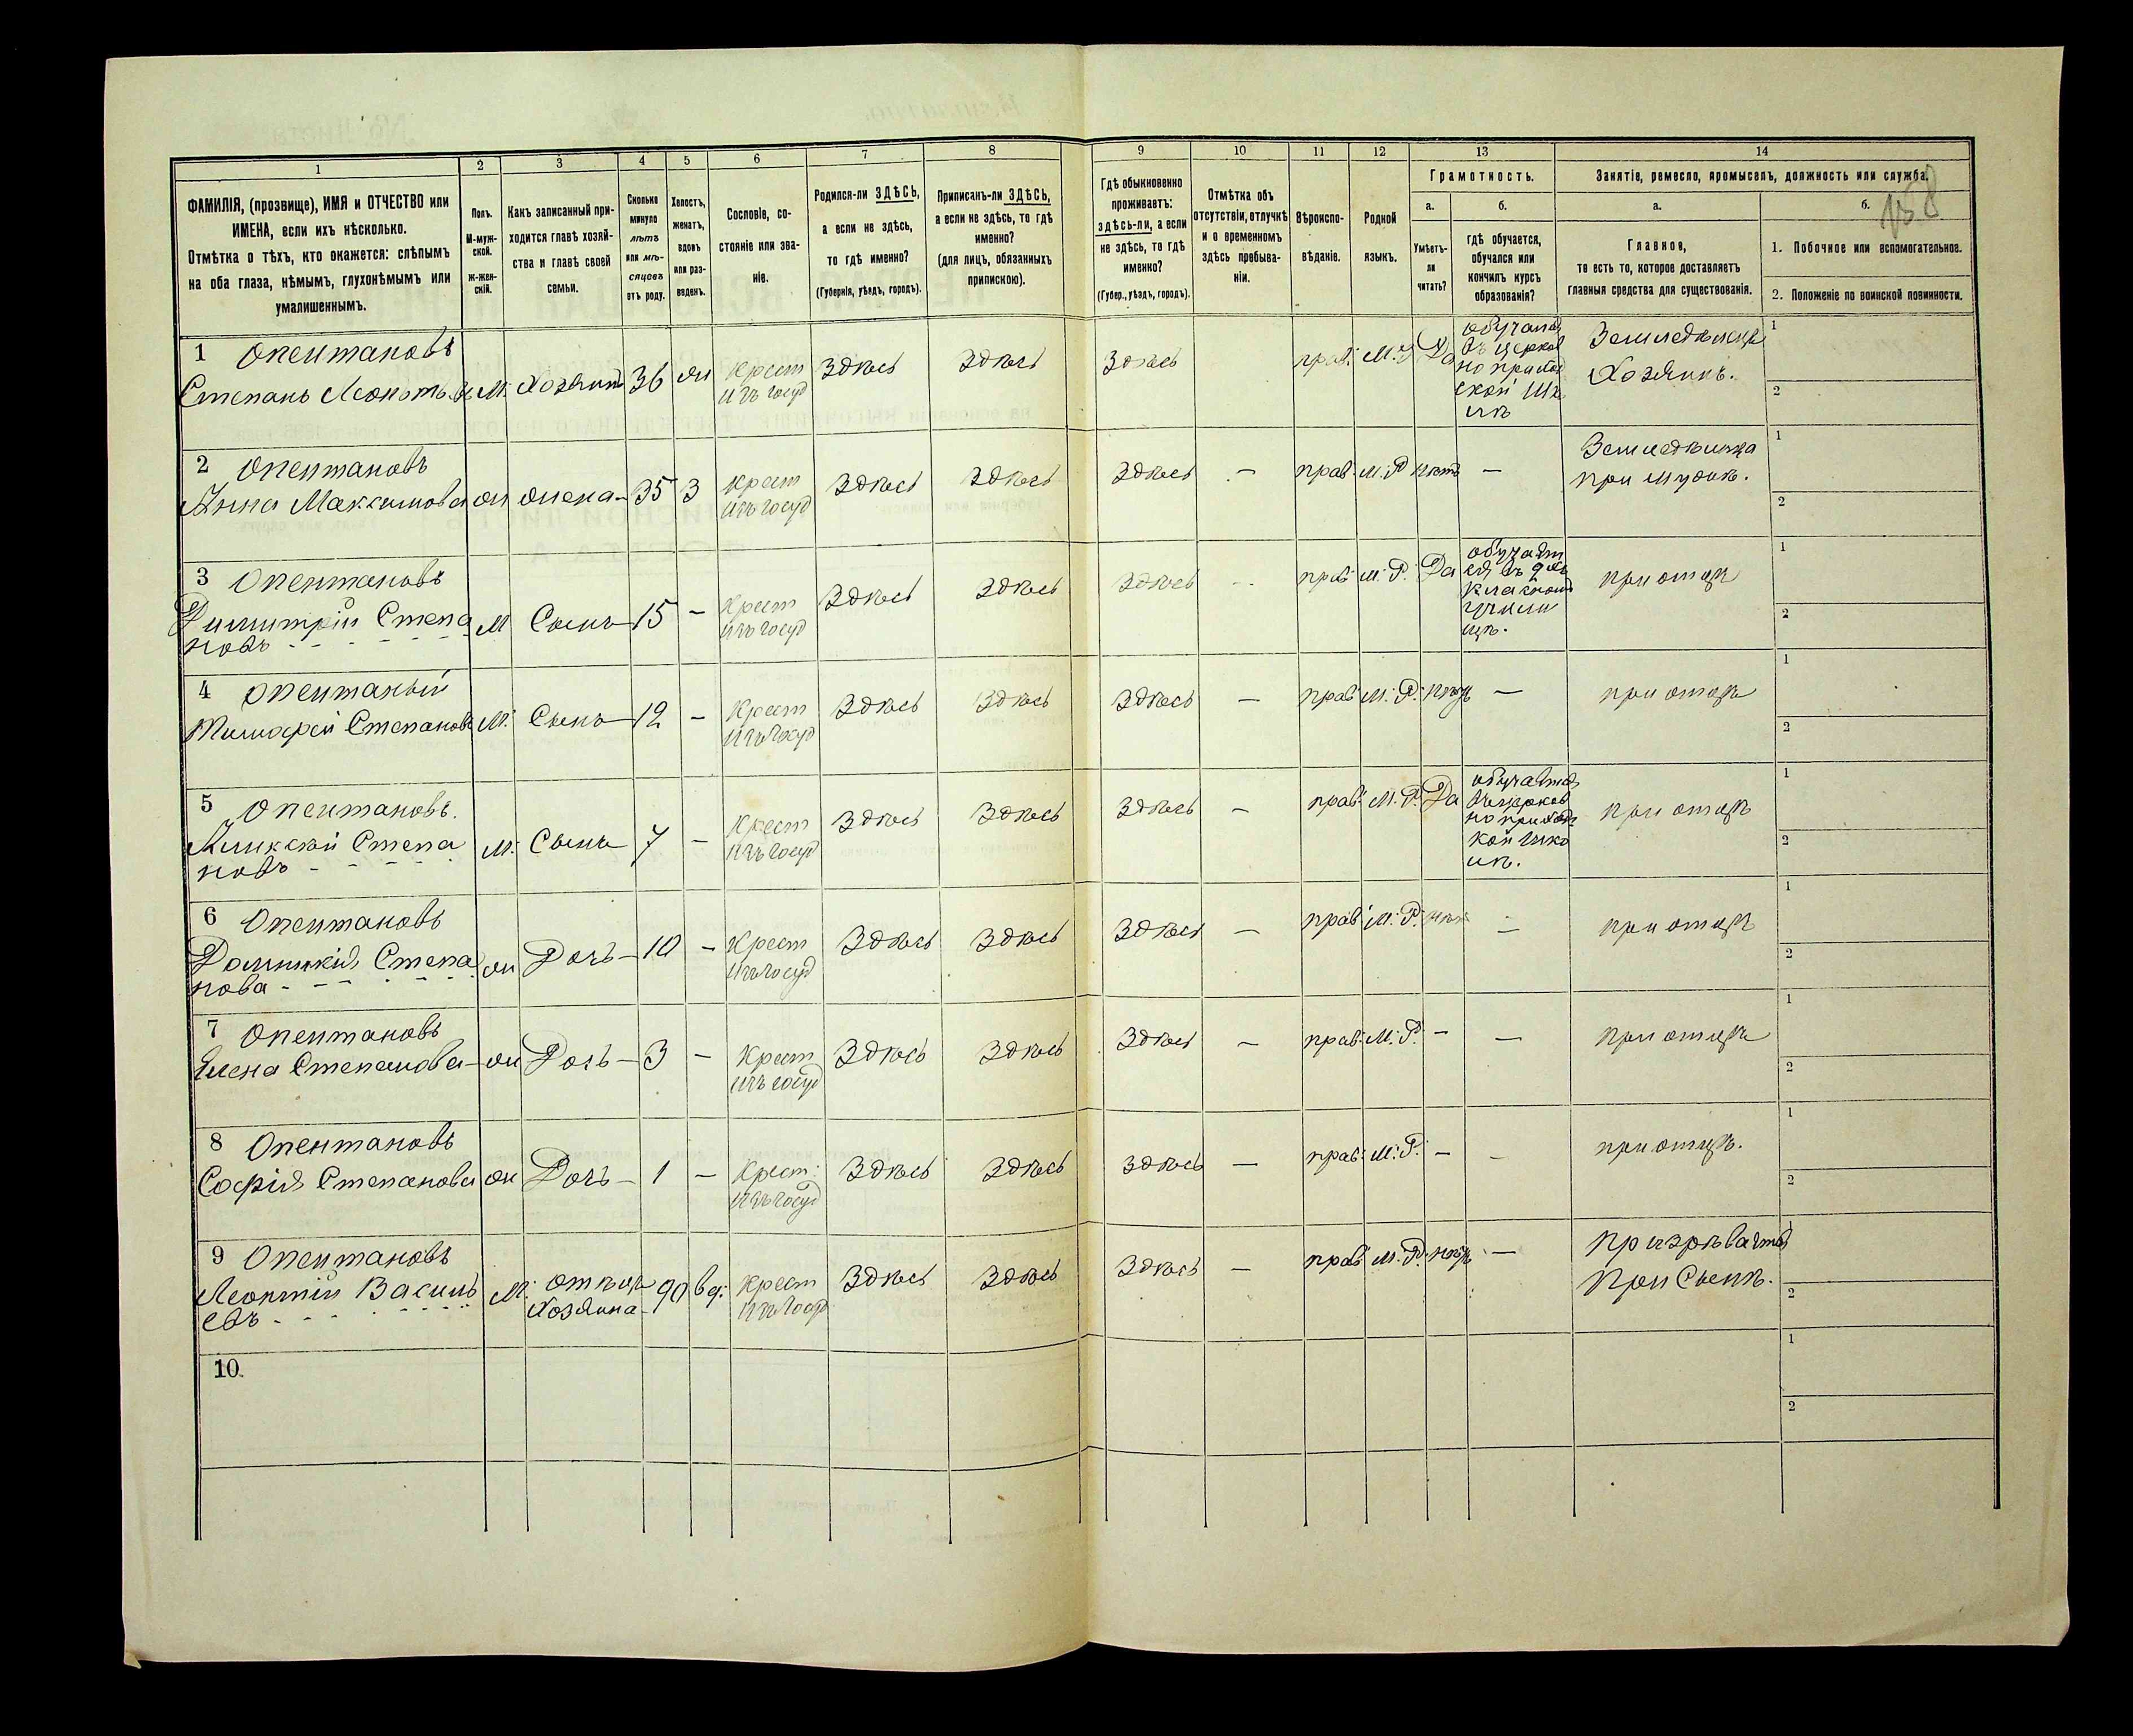 1 2 3 4 5 6 7 8 9 10 11 12 13 14
ФАМИЛІЯ, (прозвище), ИМЯ и ОТЧЕСТВО или
ИМЕНА, если ихъ нѣсколько.
Отмѣтка о тѣхъ, кто окажется: слѣпымъ
на оба глаза, нѣмымъ, глухонѣмымъ или
умалишеннымъ.
Полъ.
М-муж-
ской.
ж-жен-
скій.
Какъ записанный при-
ходится главѣ хозяй-
ства и главѣ своей
семьи.
Сколько
минуло
лѣтъ
или мѣ-
сяцевъ
отъ роду.
Холостъ,
женатъ,
вдовъ
или раз-
веденъ.
Сословіе, со-
стояніе или зва-
ніе.
Родился-ли ЗДѢСЬ,
а если не здѣсь,
то гдѣ именно?
(Губернія, уѣздъ, городъ).
Приписанъ-ли ЗДѢСЬ,
а если не здѣсь, то гдѣ
именно?
(для лицъ, обязанныхъ
припискою).
Гдѣ обыкновенно
проживаетъ:
здѣсь-ли, а если
не здѣсь, то гдѣ
именно?
(Губер., уѣздъ, городъ).
Отмѣтка объ
отсутствіи, отлучкѣ
и о временномъ
здѣсь пребыва-
ніи.
Вѣроиспо-
вѣданіе.
Родной
языкъ.
Грамотность.
а. б.
Умѣетъ-
ли
читать?
гдѣ обучается,
обучался или
кончилъ курсъ
образованія?
Занятіе, ремесло, промыселъ, должность или служба.
а. б.
158
Главное,
то есть то, которое доставляетъ
главныя средства для существованія.
1. Побочное или вспомогательное.
2. Положеніе по воинской повинности.
1 Опентановъ
Степанъ Леонтьевъ М. Хозяинъ 36 ж Крест изъ госуд Здѣсь Здѣсь Здѣсь прав. М. Р. Да
обучался
въ церков
но приход
ской шко
лѣ
Земледѣлецъ
Хозяинъ.
1
2
2 Опентановъ
Анна Максимова ж жена 35 З Крест изъ госуд Здѣсь Здѣсь Здѣсь — прав. М. Р нѣтъ —
Земледѣлица
при мужѣ.
1
2
3 Опентановъ
Димитрій Степа
новъ М Сынъ 15 — Крест изъ госуд Здѣсь Здѣсь Здѣсь — прав. М. Р. Да
обучает
ся въ двух
класном
училищ
щѣ.
при отцѣ
1
2
4 Опентаный
Тимофей Степановъ М. Сынъ 12 — Крест изъ госуд Здѣсь Здѣсь Здѣсь — прав. М. Р. нѣтъ — при отцѣ
1
2
5 Опентановъ.
Степа
новъ М. Сынъ 7 — Крест изъ госуд Здѣсь Здѣсь Здѣсь — прав. М. Р. Да
обучается
въ церков
но приходс
кой шко
лѣ.
при отцѣ
1
2
6 Опентановъ
Домникія Степа
нова ж Дочь 10 — Крест изъ госуд Здѣсь Здѣсь Здѣсь — прав. М. Р. нѣтъ — при отцѣ
1
2
7 Опентановъ
Елена Степанова ж Дочь 3 — Крест изъ госуд Здѣсь Здѣсь Здѣсь — прав. М. Р. — — при отцѣ
1
2
8 Опентановъ
Софія Степанова ж Дочь 1 — Крест. изъ госуд Здѣсь Здѣсь Здѣсь — прав. М. Р. — — при отцѣ.
1
2
9 Опентановъ
Леонтій Василь
евъ М. отецъ Хозяина 90 вд. Крест изъ госуд Здѣсь Здѣсь Здѣсь — прав. М. Р. нѣтъ —
Призрѣвается
При Сынѣ.
1
2
10.
1
2